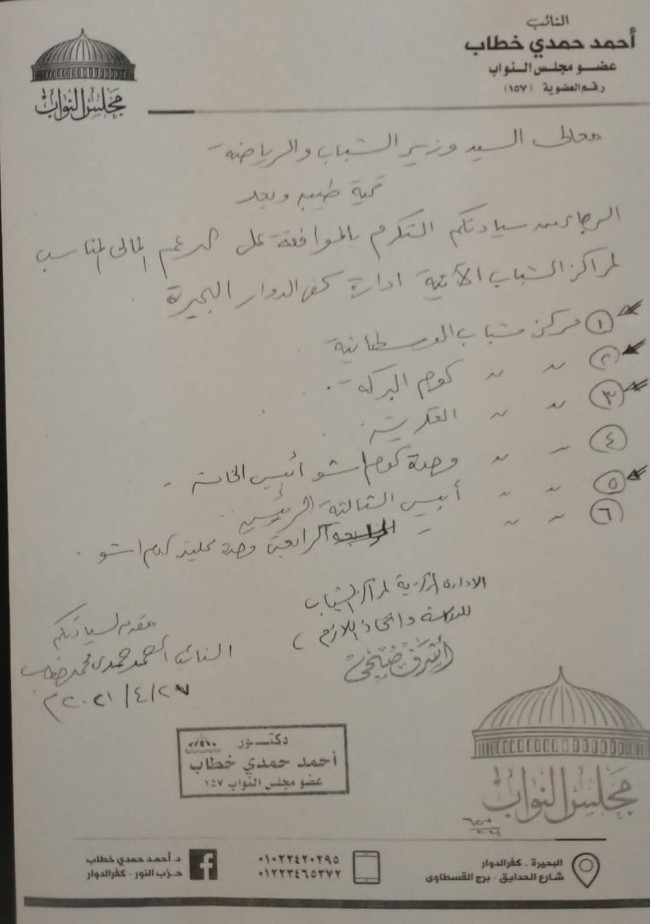 النائب
أحمد حمدي خطاب
عضو مجلس النواب
رقم العضوية (١٥٧)
مجلس النواب
معالى السيد وزير الشباب والرياضة
تحية طيبه وبعد
الرجاء من سيادتكم التكرم بالموافقة على الدعم المالى المناسب
لمراكز الشباب الآتية ادارة كفر الدوار البحيرة
١ مركز شباب الوسطانية
٢ " " كوم البركة
٣ " " القكرية
٤ " " وحدة كوم اشو أبيس الخامسة
٥ " " أبيس الثالثة
٦ " " الرابعة وحدة كوم اشو
الادارة المركزية لمراكز الشباب
للدراسة واتخاذ اللازم
أشرف صبحى
مقدمه لسيادتكم
النائب أحمد حمدى محمد خطاب
٢٠٢١/٤/٢٧م
دكتور
أحمد حمدي خطاب
عضو مجلس النواب ١٥٧
مجلس النواب
البحيرة . كفرالدوار
شارع الحدايق - برج القسطاوى
٠١٠٢٢٤٢٠٢٩٥
٠١٢٢٣٤٦٥٣٧٢
د. أحمد حمدي خطاب
حزب النور - كفرالدوار